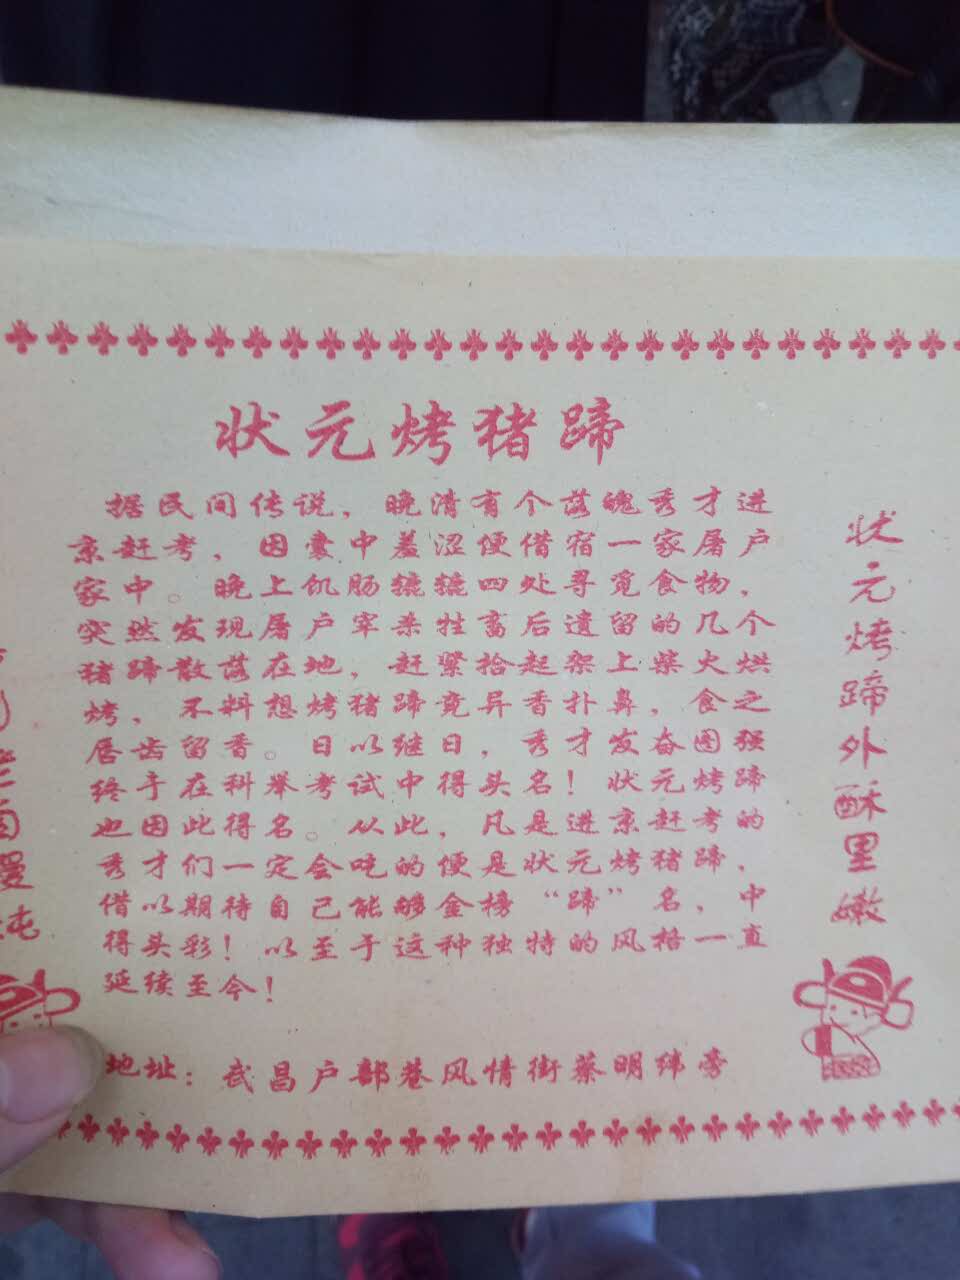 状元烤猪蹄
据民间传说，晚清有个落魄秀才进
京赶考，因囊中羞涩便借宿一家屠户
家中。晚上饥肠辘辘四处寻觅食物，
突然发现屠户宰杀牲畜后遗留的几个
猪蹄散落在地，赶紧拾起架上柴火烘
烤，不料想烤猪蹄竟异香扑鼻，食之
唇齿留香。日以继日，秀才发奋图强
终于在科举考试中得头名！状元烤蹄
也因此得名。从此，凡是进京赶考的
秀才们一定会吃的便是状元烤猪蹄，
借以期待自己能够金榜“蹄”名，中
得头彩！以至于这种独特的风格一直
延续至今！
地址：武昌户部巷风情街蔡明纬旁
状元烤蹄外酥里嫩